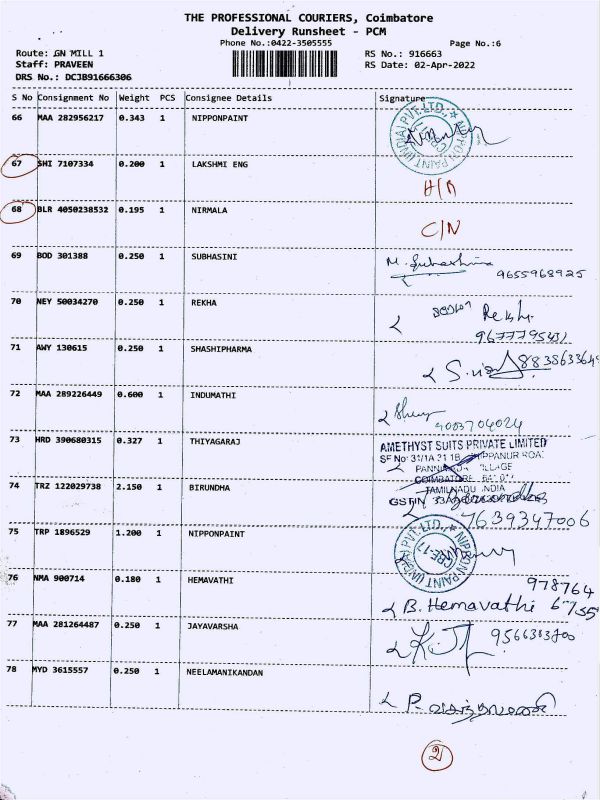 THE PROFESSIONAL COURIERS, Coimbatore
Delivery Runsheet - PCM
Phone No.:0422-3505555 Page No.:6
Route: GN MILL 1 RS No.: 916663
Staff: PRAVEEN RS Date: 02-Apr-2022
DRS No.: DCJB91666306
S No Consignment No Weight PCS Consignee Details Signature
66 MAA 282956217 0.343 1 NIPPONPAINT NIPPON PAINT (INDIA) PVT. LTD.,
67 SHI 7107334 0.200 1 LAKSHMI ENG
68 BLR 4050238532 0.195 1 NIRMALA C/N
69 BOD 301388 0.250 1 SUBHASINI M. Subashini
9655968925
70 NEY 50034270 0.250 1 REKHA Rekha
71 AWY 130615 0.250 1 SHASHIPHARMA
72 MAA 289226449 0.600 1 INDUMATHI
9003704024
73 HRD 390680315 0.327 1 THIYAGARAJ AMETHYST SUITS PRIVATE LIMITED
SF No: 31/1A
COIMBATORE
74 TRZ 122029738 2.150 1 BIRUNDHA TAMILNADU INDIA
GSTIN
7639347006
75 TRP 1896529 1.200 1 NIPPONPAINT NIPPON PAINT (INDIA) PVT. LTD., CBE-17
76 NMA 900714 0.180 1 HEMAVATHI 978764
B. Hemavathi
77 MAA 281264487 0.250 1 JAYAVARSHA
78 MYD 3615557 0.250 1 NEELAMANIKANDAN
2